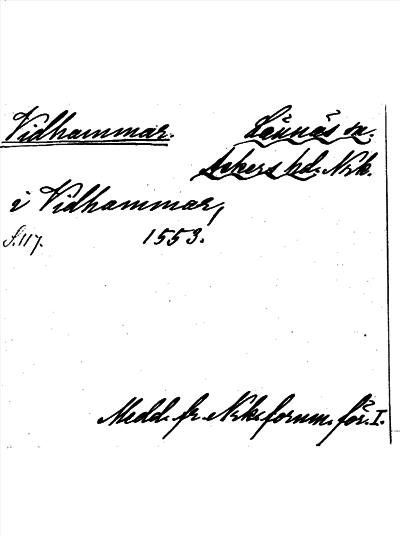 Vidhammar. Lännäs sn.
Askers hd. Nrk.
i Vidhammar,
S. 117. 1553.
Medd. fr. Nrk. fornm.för. I.